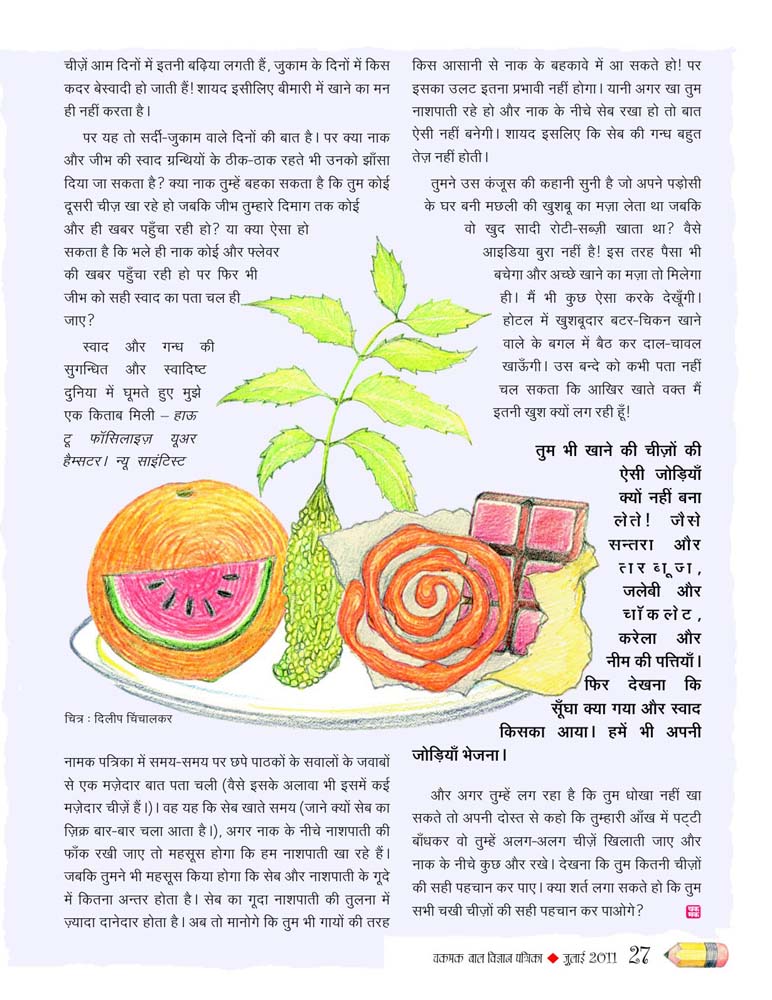 चीज़ें आम दिनों में इतनी बढ़िया लगती हैं, जुकाम के दिनों में किस
कदर बेस्वादी हो जाती हैं! शायद इसीलिए बीमारी में खाने का मन
ही नहीं करता है।
पर यह तो सर्दी-जुकाम वाले दिनों की बात है। पर क्या नाक
और जीभ की स्वाद ग्रन्थियों के ठीक-ठाक रहते भी उनको झाँसा
दिया जा सकता है? क्या नाक तुम्हें बहका सकता है कि तुम कोई
दूसरी चीज़ खा रहे हो जबकि जीभ तुम्हारे दिमाग तक कोई
और ही खबर पहुँचा रही हो? या क्या ऐसा हो
सकता है कि भले ही नाक कोई और फ्लेवर
की खबर पहुँचा रही हो पर फिर भी
जीभ को सही स्वाद का पता चल ही
जाए?
स्वाद और गन्ध की
सुगन्धित और स्वादिष्ट
दुनिया में घूमते हुए मुझे
एक किताब मिली – हाऊ
टू फॉसिलाइज़ यूअर
हैम्सटर। न्यू साइंटिस्ट
चित्र : दिलीप चिंचालकर
नामक पत्रिका में समय-समय पर छपे पाठकों के सवालों के जवाबों
से एक मज़ेदार बात पता चली (वैसे इसके अलावा भी इसमें कई
मज़ेदार चीज़ें हैं।)। वह यह कि सेब खाते समय (जाने क्यों सेब का
ज़िक्र बार-बार चला आता है।), अगर नाक के नीचे नाशपाती की
फाँक रखी जाए तो महसूस होगा कि हम नाशपाती खा रहे हैं।
जबकि तुमने भी महसूस किया होगा कि सेब और नाशपाती के गूदे
में कितना अन्तर होता है। सेब का गूदा नाशपाती की तुलना में
ज़्यादा दानेदार होता है। अब तो मानोगे कि तुम भी गायों की तरह
किस आसानी से नाक के बहकावे में आ सकते हो! पर
इसका उलट इतना प्रभावी नहीं होगा। यानी अगर खा तुम
नाशपाती रहे हो और नाक के नीचे सेब रखा हो तो बात
ऐसी नहीं बनेगी। शायद इसलिए कि सेब की गन्ध बहुत
तेज़ नहीं होती।
तुमने उस कंजूस की कहानी सुनी है जो अपने पड़ोसी
के घर बनी मछली की खुशबू का मज़ा लेता था जबकि
वो खुद सादी रोटी-सब्ज़ी खाता था? वैसे
आइडिया बुरा नहीं है! इस तरह पैसा भी
बचेगा और अच्छे खाने का मज़ा तो मिलेगा
ही। मैं भी कुछ ऐसा करके देखूँगी।
होटल में खुशबूदार बटर-चिकन खाने
वाले के बगल में बैठ कर दाल-चावल
खाऊँगी। उस बन्दे को कभी पता नहीं
चल सकता कि आखिर खाते वक्त मैं
इतनी खुश क्यों लग रही हूँ!
तुम भी खाने की चीज़ों की
ऐसी जोड़ियाँ
क्यों नहीं बना
लेते! जैसे
सन्तरा और
तरबूजा,
जलेबी और
चॉकलेट,
करेला और
नीम की पत्तियाँ।
फिर देखना कि
सूँघा क्या गया और स्वाद
किसका आया। हमें भी अपनी
जोड़ियाँ भेजना।
और अगर तुम्हें लग रहा है कि तुम धोखा नहीं खा
सकते तो अपनी दोस्त से कहो कि तुम्हारी आँख में पट्टी
बाँधकर वो तुम्हें अलग-अलग चीज़ें खिलाती जाए और
नाक के नीचे कुछ और रखे। देखना कि तुम कितनी चीज़ों
की सही पहचान कर पाए। क्या शर्त लगा सकते हो कि तुम
सभी चखी चीज़ों की सही पहचान कर पाओगे?
चकमक बाल विज्ञान पत्रिका ◆ जुलाई 2011 27